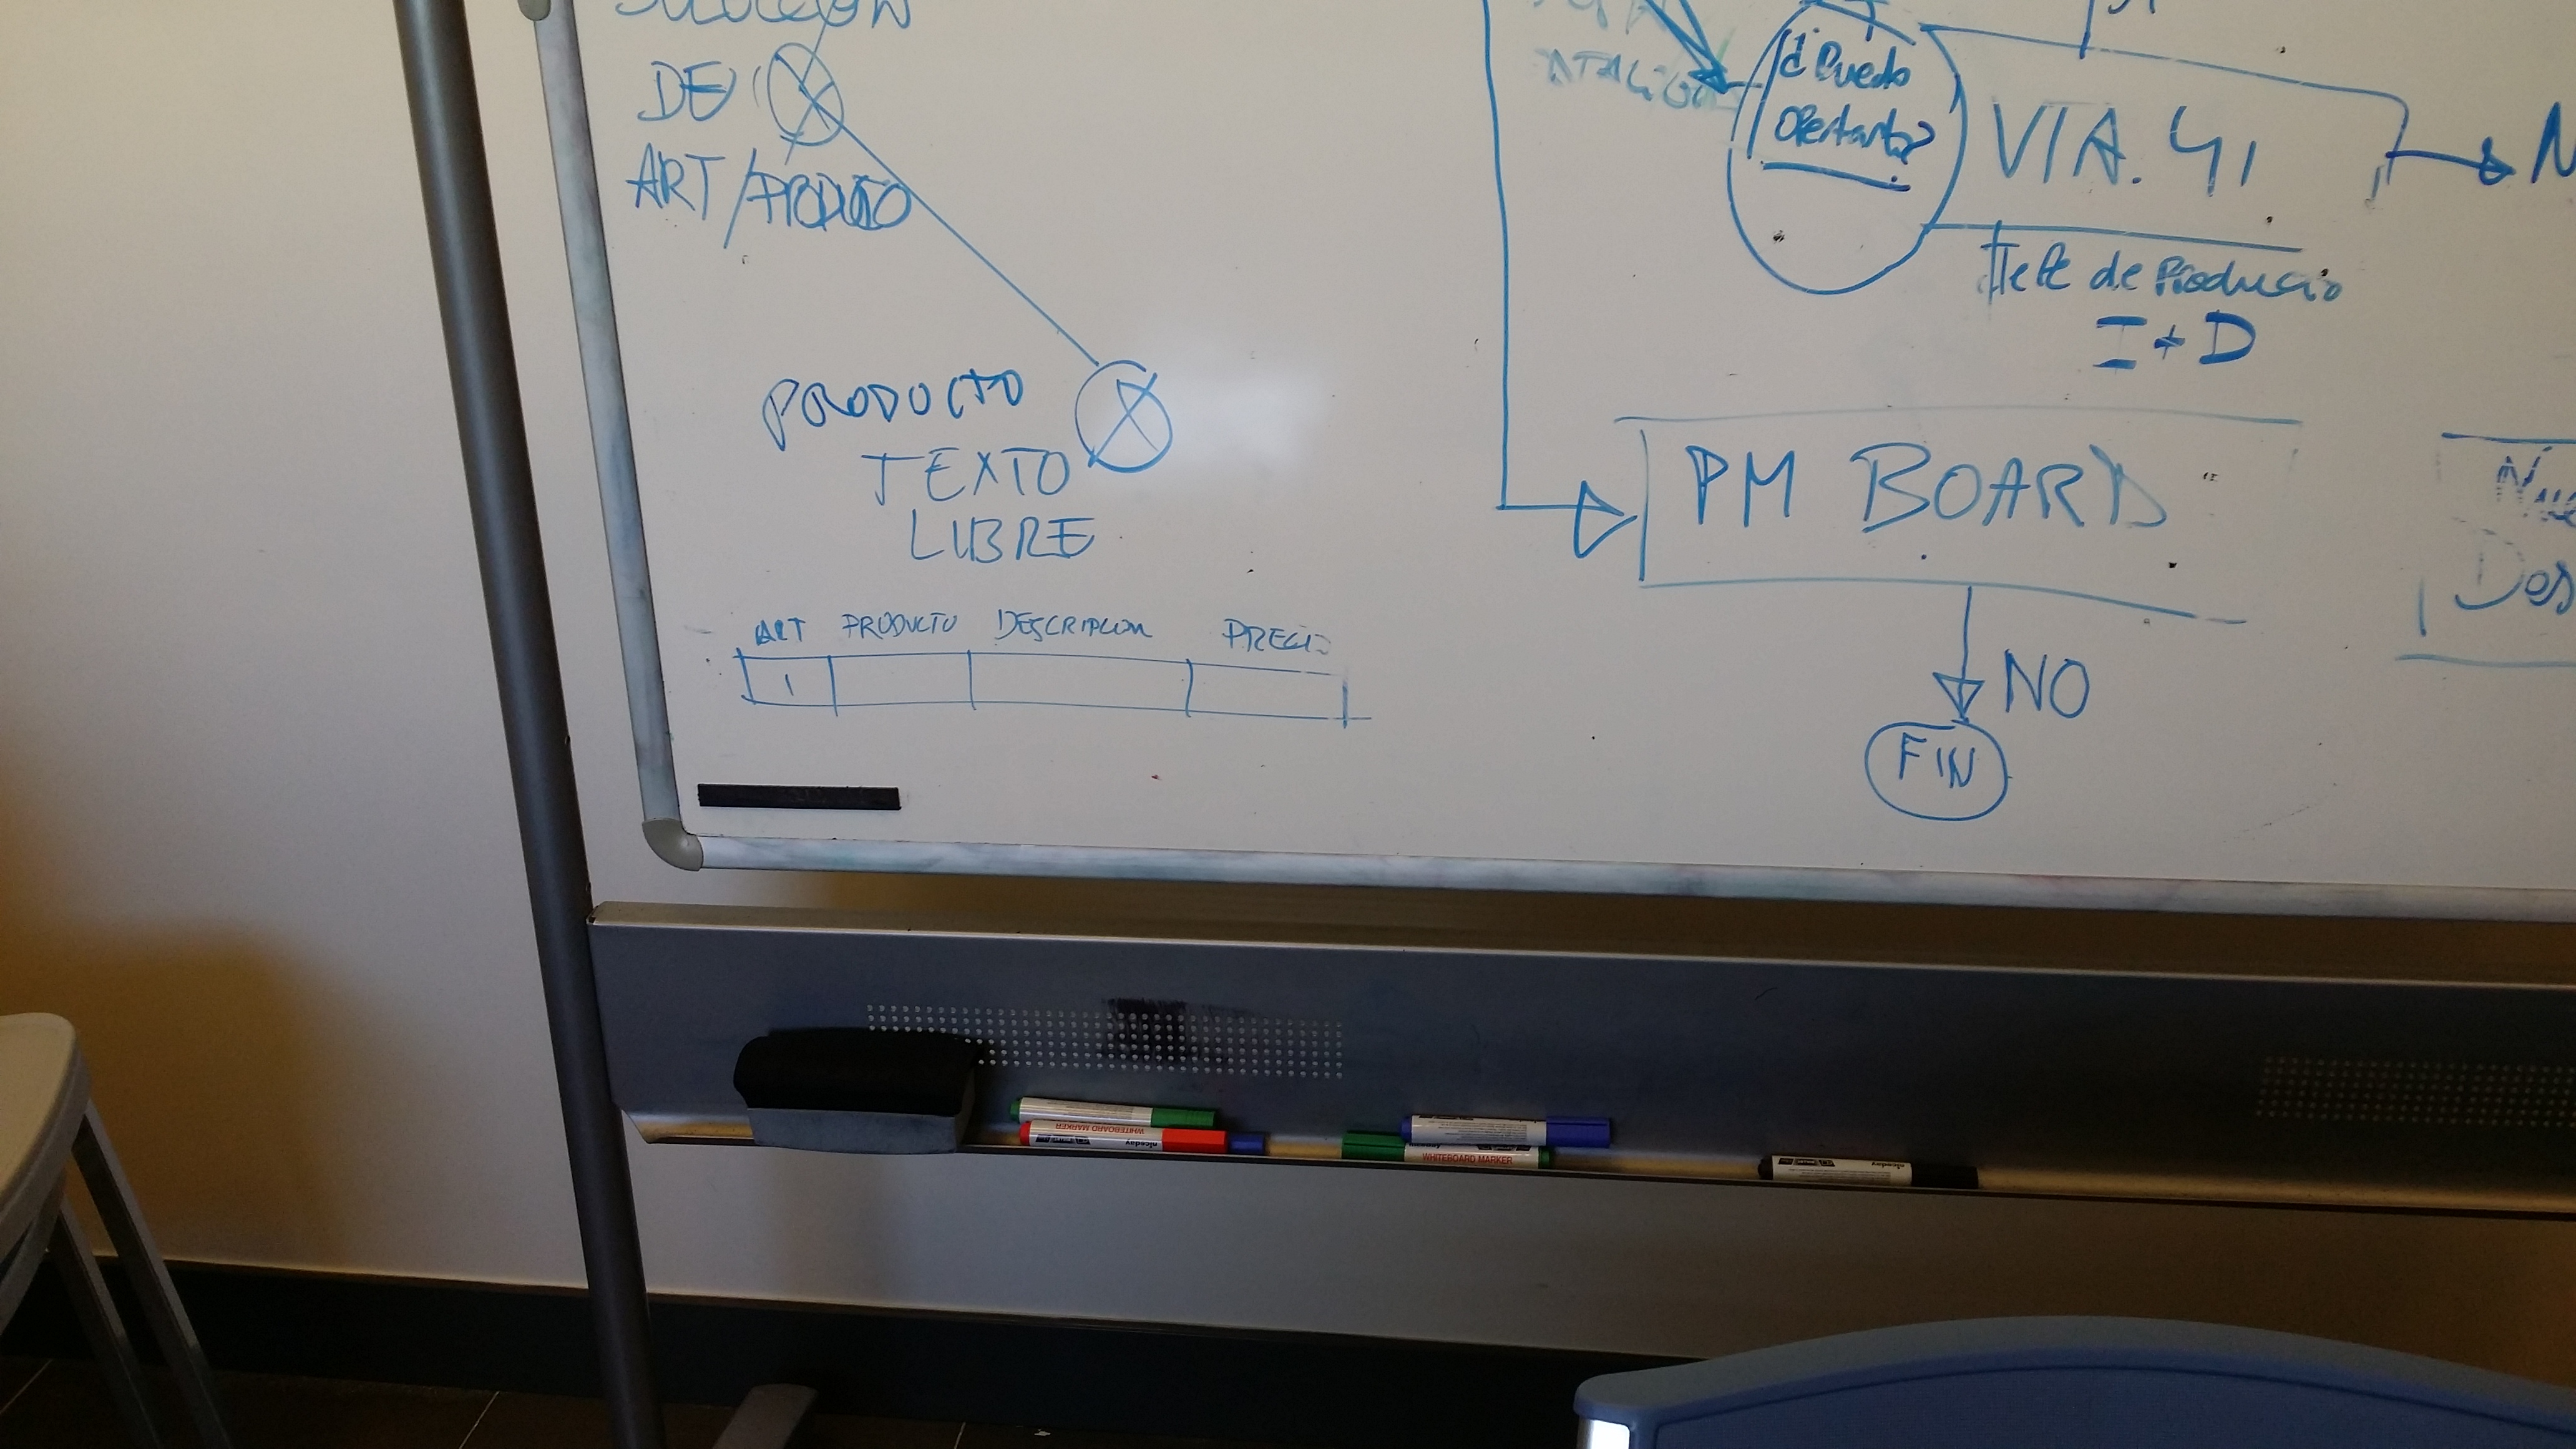 DE
ART/PRODUCTO
PRODUCTO
TEXTO
LIBRE
ART PRODUCTO DESCRIPCION PRECIO
1
¿Puedo
Ofertarlo?
VIA. 41
Jefe de Producció
I+D
PM BOARD
NO
FIN
N
Des
WHITEBOARD MARKER
niceday
WHITEBOARD MARKER
niceday